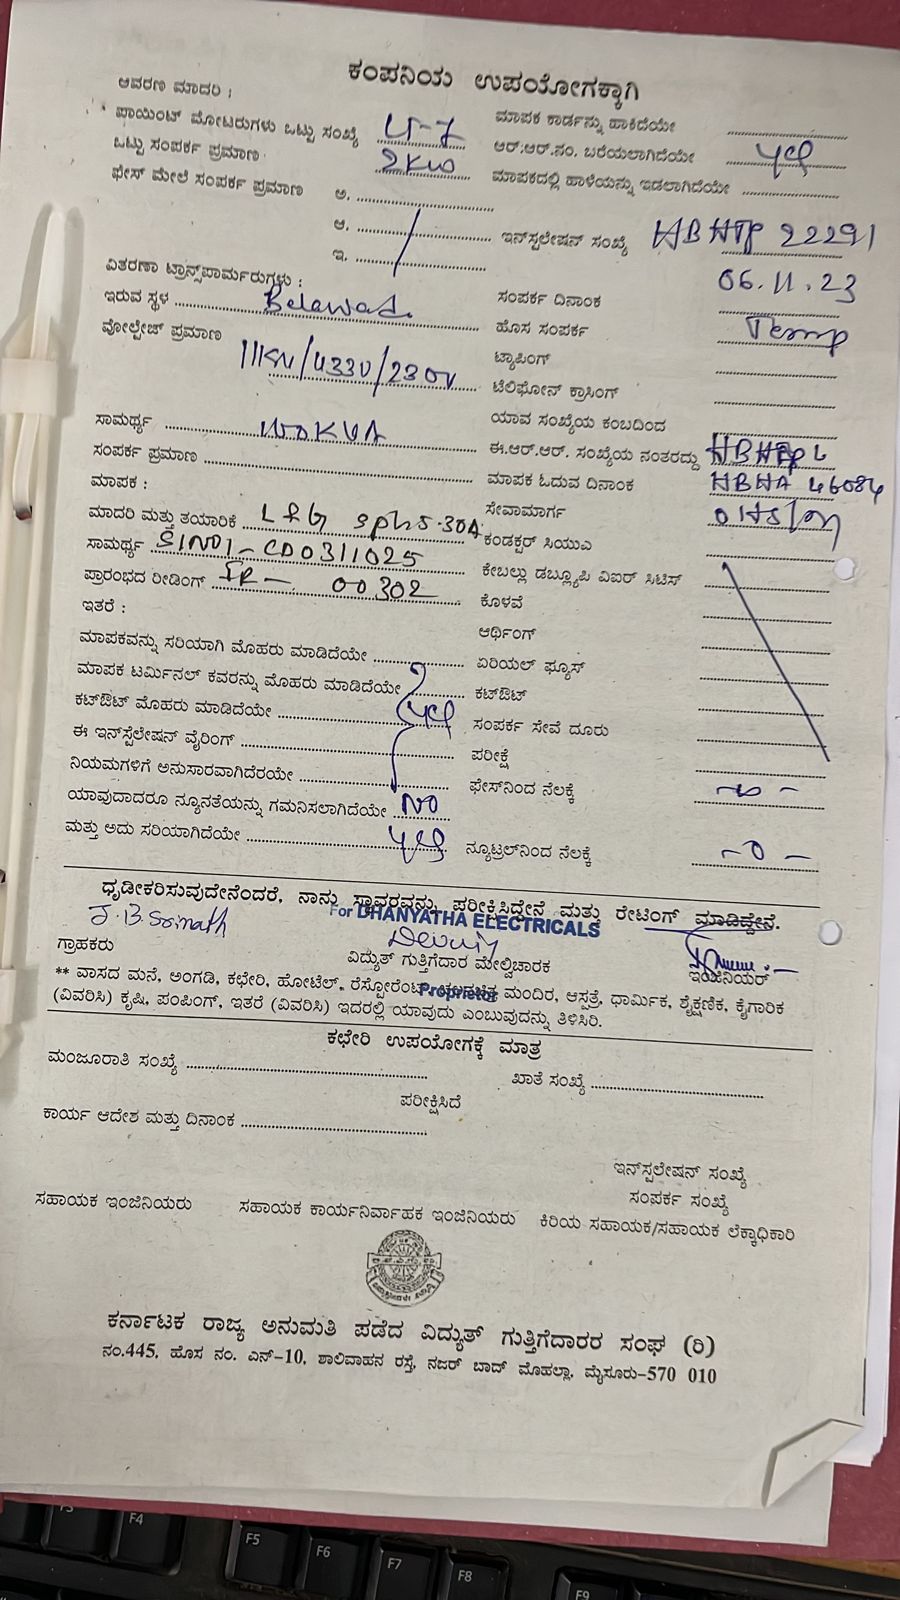 ಕಂಪನಿಯ ಉಪಯೋಗಕ್ಕಾಗಿ
ಆವರಣ ಮಾದರಿ :
ಮಾಪಕ ಕಾರ್ಡನ್ನು ಹಾಕಿದೆಯೇ
ಪಾಯಿಂಟ್ ಮೋಟರುಗಳು ಒಟ್ಟು ಸಂಖ್ಯೆ
ಆರ್.ಆರ್.ನಂ. ಬರೆಯಲಾಗಿದೆಯೇ yes
ಒಟ್ಟು ಸಂಪರ್ಕ ಪ್ರಮಾಣ 2KW
ಮಾಪಕದಲ್ಲಿ ಹಾಳೆಯನ್ನು ಇಡಲಾಗಿದೆಯೇ
ಫೇಸ್ ಮೇಲೆ ಸಂಪರ್ಕ ಪ್ರಮಾಣ ಅ.
ಆ.
ಇನ್‌ಸ್ಪಲೇಷನ್ ಸಂಖ್ಯೆ HBHTP 22291
ಇ.
ವಿತರಣಾ ಟ್ರಾನ್ಸ್‌ಪಾರ್ಮರುಗಳು :
ಸಂಪರ್ಕ ದಿನಾಂಕ 06.11.23
ಇರುವ ಸ್ಥಳ Belawadi
ಹೊಸ ಸಂಪರ್ಕ Temp
ವೋಲ್ಟೇಜ್ ಪ್ರಮಾಣ 11KV/433V/230V
ಟ್ಯಾಪಿಂಗ್
ಟೆಲಿಫೋನ್ ಕ್ರಾಸಿಂಗ್
ಯಾವ ಸಂಖ್ಯೆಯ ಕಂಬದಿಂದ
ಸಾಮರ್ಥ್ಯ 100KVA
ಈ.ಆರ್.ಆರ್. ಸಂಖ್ಯೆಯ ನಂತರದ್ದು
ಸಂಪರ್ಕ ಪ್ರಮಾಣ
ಮಾಪಕ ಓದುವ ದಿನಾಂಕ HBHA 46084
ಮಾಪಕ :
ಸೇವಾಮಾರ್ಗ
ಮಾದರಿ ಮತ್ತು ತಯಾರಿಕೆ L&G
ಕಂಡಕ್ಟರ್ ಸಿಯುಎ
ಸಾಮರ್ಥ್ಯ SlNo1-CD0311025
ಕೇಬಲ್ಲು ಡಬ್ಲ್ಯೂಪಿ ವಿಐರ್ ಸಿಟಿಸ್
ಪ್ರಾರಂಭದ ರೀಡಿಂಗ್ IR - 00302
ಕೊಳವೆ
ಇತರೆ :
ಆರ್ಥಿಂಗ್
ಮಾಪಕವನ್ನು ಸರಿಯಾಗಿ ಮೊಹರು ಮಾಡಿದೆಯೇ
ಏರಿಯಲ್ ಫ್ಯೂಸ್
ಮಾಪಕ ಟರ್ಮಿನಲ್ ಕವರನ್ನು ಮೊಹರು ಮಾಡಿದೆಯೇ
ಕಟ್‌ಔಟ್
ಕಟ್‌ಔಟ್ ಮೊಹರು ಮಾಡಿದೆಯೇ yes
ಸಂಪರ್ಕ ಸೇವೆ ದೂರು
ಈ ಇನ್‌ಸ್ಪೆಲೇಷನ್ ವೈರಿಂಗ್
ಪರೀಕ್ಷೆ
ನಿಯಮಗಳಿಗೆ ಅನುಸಾರವಾಗಿದೆರಯೇ
ಫೇಸ್‌ನಿಂದ ನೆಲಕ್ಕೆ
ಯಾವುದಾದರೂ ನ್ಯೂನತೆಯನ್ನು ಗಮನಿಸಲಾಗಿದೆಯೇ NO
ಮತ್ತು ಅದು ಸರಿಯಾಗಿದೆಯೇ yes
ನ್ಯೂಟ್ರಲ್‌ನಿಂದ ನೆಲಕ್ಕೆ -0-
ಧೃಡೀಕರಿಸುವುದೇನೆಂದರೆ, ನಾನು ಸ್ಥಾವರವನ್ನು ಪರೀಕ್ಷಿಸಿದ್ದೇನೆ ಮತ್ತು ರೇಟಿಂಗ್ ಮಾಡಿದ್ದೇನೆ.
For DHANYATHA ELECTRICALS
ಗ್ರಾಹಕರು
ವಿದ್ಯುತ್ ಗುತ್ತಿಗೆದಾರ ಮೇಲ್ವಿಚಾರಕ
ಇಂಜಿನಿಯರ್
Proprietor
** ವಾಸದ ಮನೆ, ಅಂಗಡಿ, ಕಛೇರಿ, ಹೋಟೆಲ್, ರೆಸ್ಟೋರೆಂಟ್, ಚಲನಚಿತ್ರ ಮಂದಿರ, ಆಸ್ಪತ್ರೆ, ಧಾರ್ಮಿಕ, ಶೈಕ್ಷಣಿಕ, ಕೈಗಾರಿಕ
(ವಿವರಿಸಿ) ಕೃಷಿ, ಪಂಪಿಂಗ್, ಇತರೆ (ವಿವರಿಸಿ) ಇದರಲ್ಲಿ ಯಾವುದು ಎಂಬುವುದನ್ನು ತಿಳಿಸಿರಿ.
ಕಛೇರಿ ಉಪಯೋಗಕ್ಕೆ ಮಾತ್ರ
ಮಂಜೂರಾತಿ ಸಂಖ್ಯೆ
ಖಾತೆ ಸಂಖ್ಯೆ
ಪರೀಕ್ಷಿಸಿದೆ
ಕಾರ್ಯ ಆದೇಶ ಮತ್ತು ದಿನಾಂಕ
ಇನ್‌ಸ್ಪಲೇಷನ್ ಸಂಖ್ಯೆ
ಸಂಪರ್ಕ ಸಂಖ್ಯೆ
ಸಹಾಯಕ ಇಂಜಿನಿಯರು
ಸಹಾಯಕ ಕಾರ್ಯನಿರ್ವಾಹಕ ಇಂಜಿನಿಯರು
ಕಿರಿಯ ಸಹಾಯಕ/ಸಹಾಯಕ ಲೆಕ್ಕಾಧಿಕಾರಿ
ಕರ್ನಾಟಕ ರಾಜ್ಯ ಅನುಮತಿ ಪಡೆದ ವಿದ್ಯುತ್ ಗುತ್ತಿಗೆದಾರರ ಸಂಘ (ರಿ)
ನಂ.445, ಹೊಸ ನಂ. ಎನ್-10, ಶಾಲಿವಾಹನ ರಸ್ತೆ, ನಜರ್ ಬಾದ್ ಮೊಹಲ್ಲಾ, ಮೈಸೂರು-570 010
F3
F4
F5
F6
F7
F8
F9